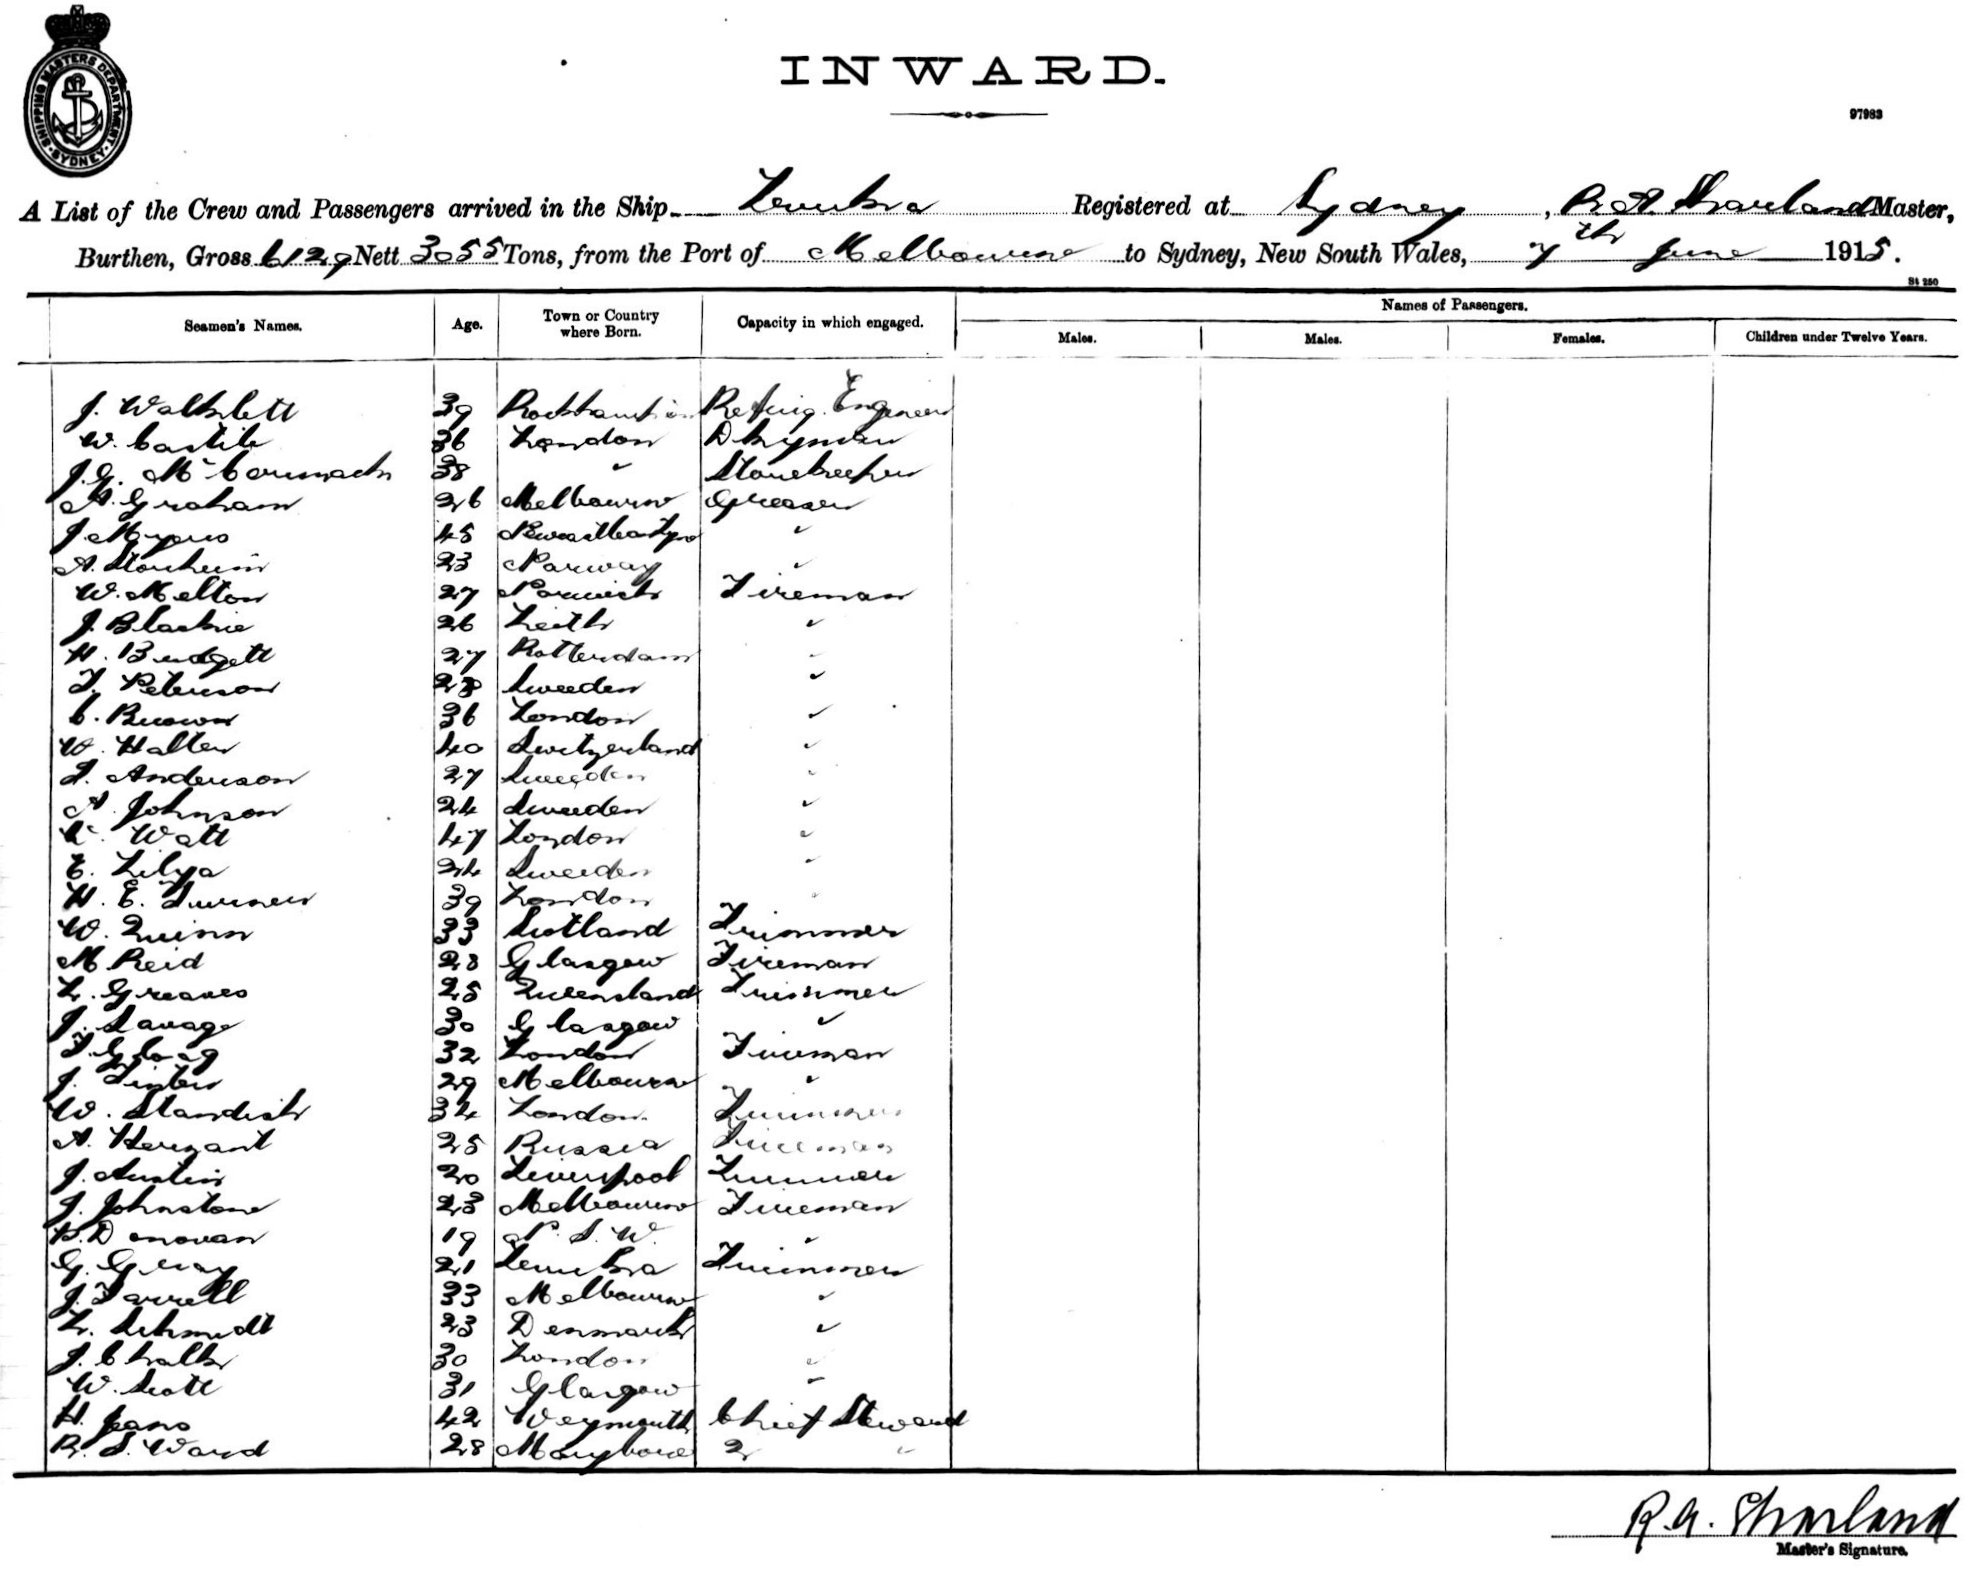 SHIPPING MASTERS DEPARTMENT SYDNEY
INWARD.
97983
A List of the Crew and Passengers arrived in the Ship Levuka Registered at Sydney, R. A. Sharland Master,
Burthen, Gross 6129 Nett 3055 Tons, from the Port of Melbourne to Sydney, New South Wales, 7th June 1915.
St 250
Seamen's Names. Age. Town or Country where Born. Capacity in which engaged. Names of Passengers.
Males. Males. Females. Children under Twelve Years.
J. Walklett 39 Rockhampton Refrig. Engineer
W. Castile 36 London Dkyman
J.G. McCormack 38 " Storekeeper
A. Graham 26 Melbourne Greaser
J. Myers 45 "
A. 23 Norway "
W. Melton 27 Norwich Fireman
J. Blackie 26 Leith "
H. Budgett 27 Rotterdam "
F. Peterson 28 Sweeden "
C. Brown 36 London "
W. Haller 40 Switzerland "
F. Anderson 27 Sweeden "
A. Johnson 24 Sweeden "
Watt 47 London "
E. Lilya 24 Sweeden "
H. E. Turner 39 London "
W. Quinn 33 Scotland Trimmer
M Reid 28 Glasgow Fireman
L. Greaves 25 Queensland Trimmer
J. Savage 30 Glasgow "
32 London Fireman
J. 29 Melbourne "
W. Standish 34 London Trimmer
A. 25 Russia Fireman
J. Austin 20 Liverpool Trimmer
J. Johnstone 23 Melbourne Fireman
P. Donovan 19 N. S. W. "
G. Gray 21 Levuka Trimmer
J. Farrell 33 Melbourne "
L. Schmidt 23 Denmark "
J. Chalk 30 London "
W. Scott 31 Glasgow "
H. Jeans 42 Weymouth Chief Steward
R. S. Ward 28 Marybore 2 "
R.A. Sharland
Master's Signature.